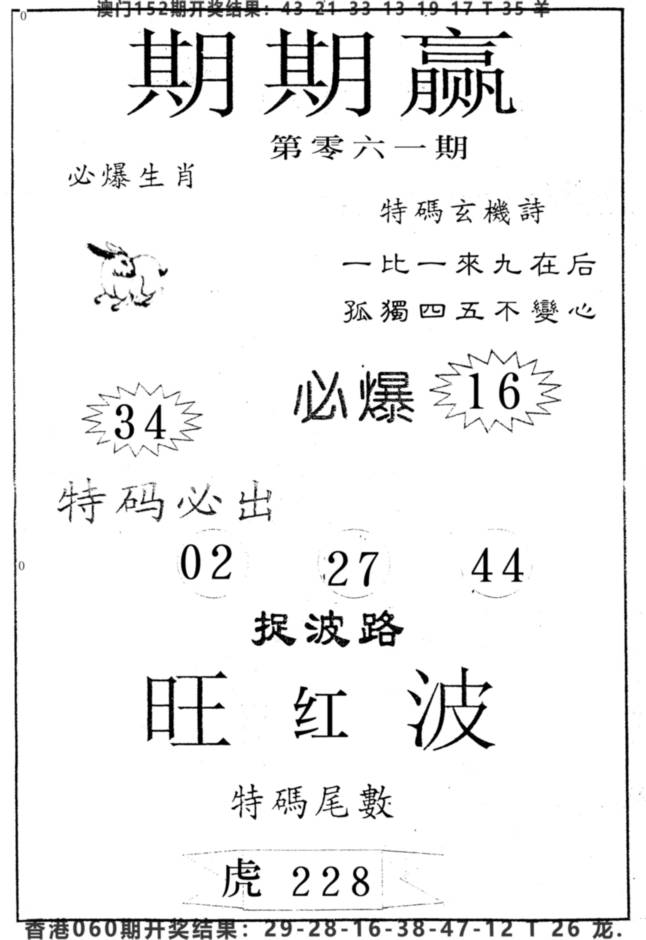 澳门152期开奖结果：43-21-33-13-19-17 T 35 羊
期期赢
第零六一期
必爆生肖
特碼玄機詩
一比一來九在后
孤獨四五不變心
必爆 16
34
特码必出
02 27 44
捉波路
旺红波
特碼尾數
虎 228
香港060期开奖结果：29-28-16-38-47-12 T 26 龙.
0
0